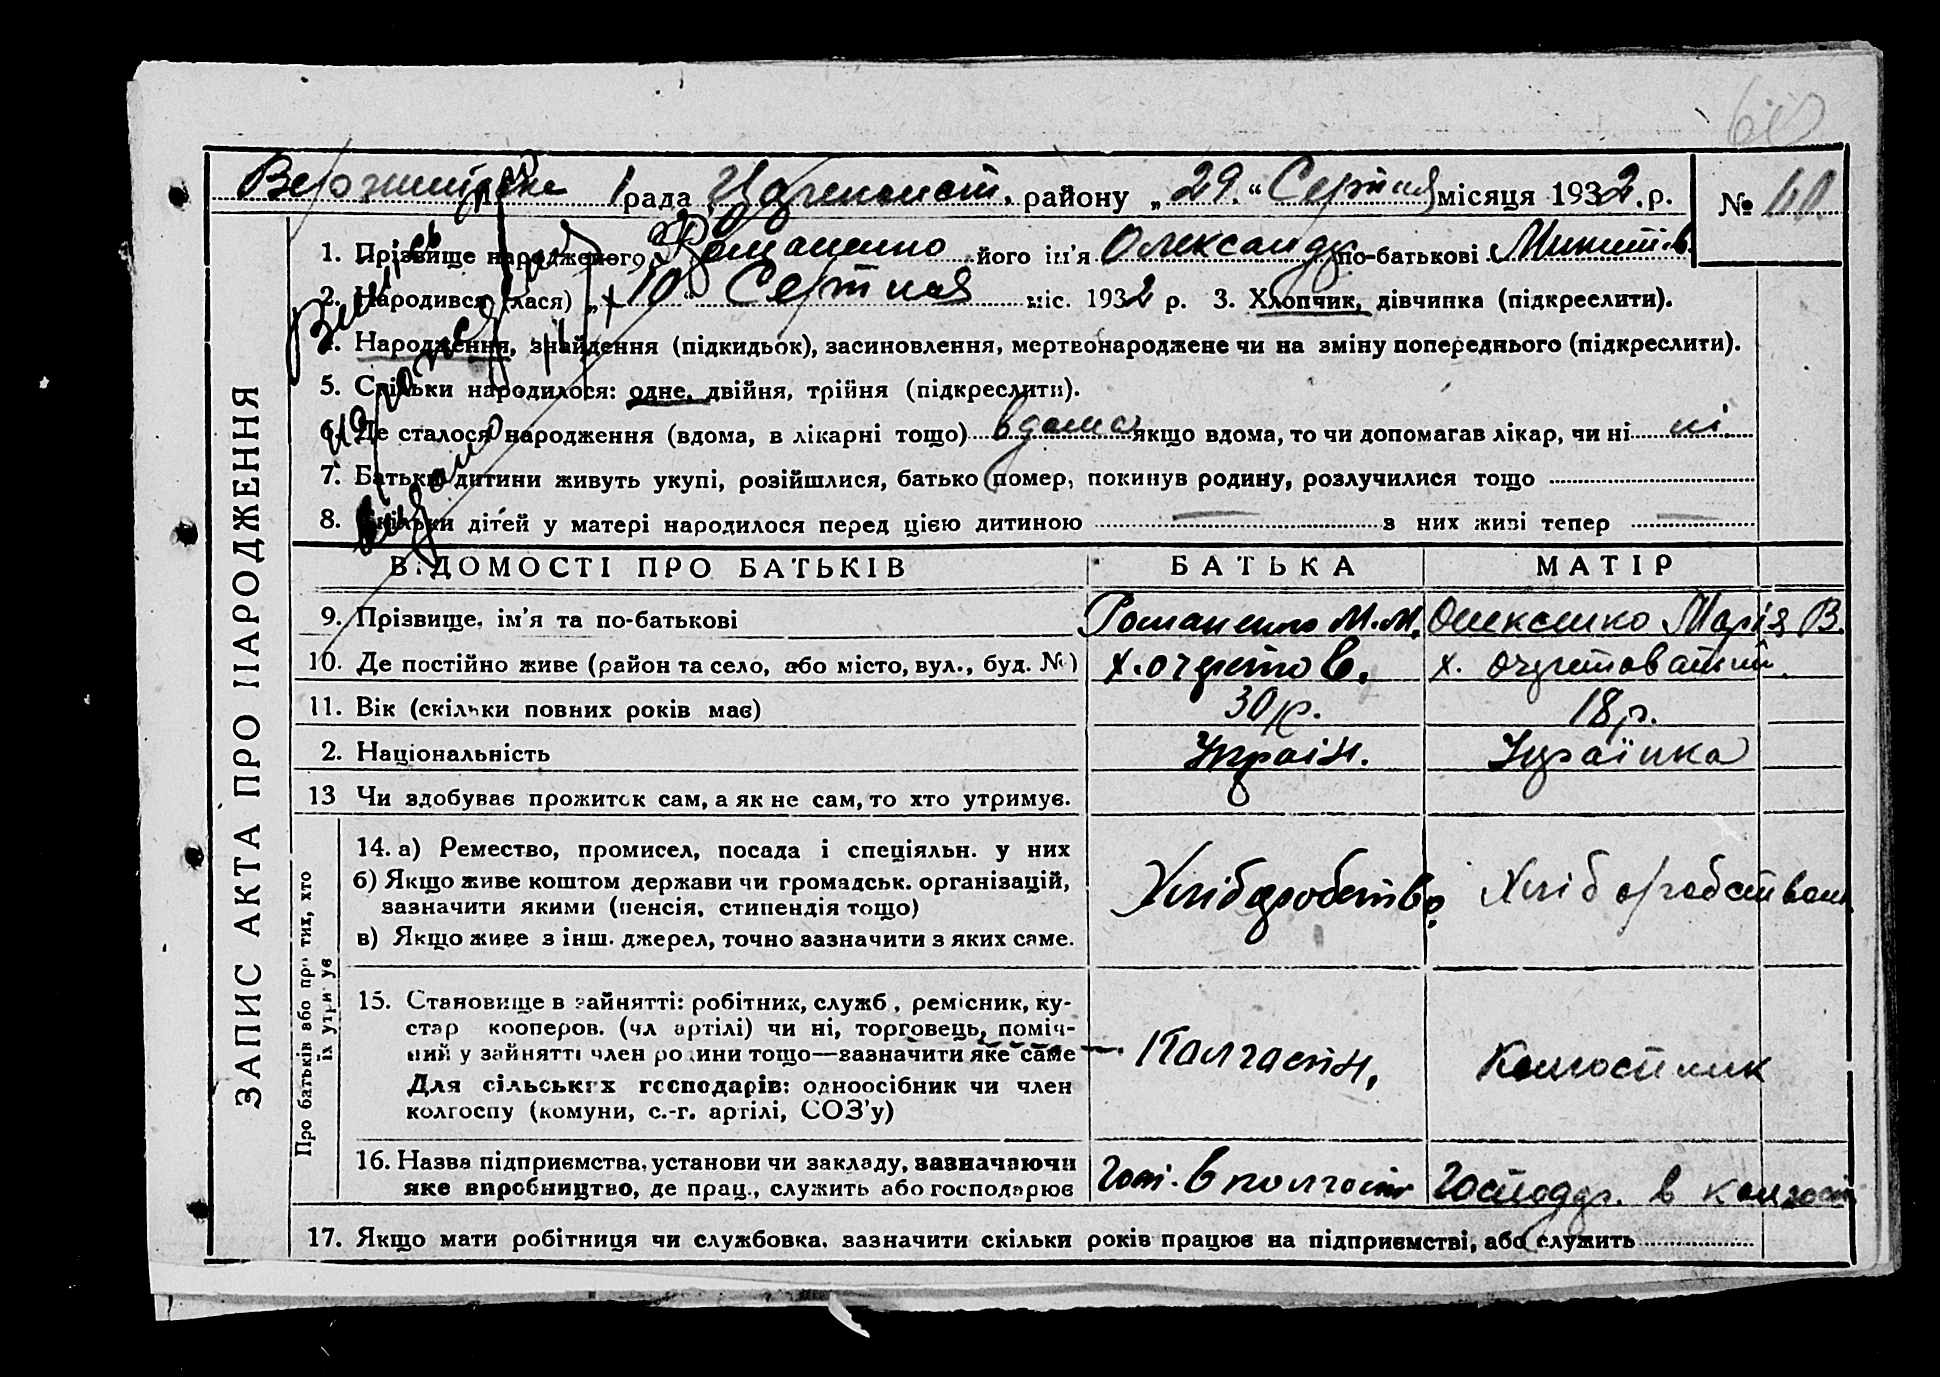 60
рада Царичанськ. району „29.“ Серпня місяця 1932.р. № 40
1. Прізвище народженого Романенко його ім'я Олександр по-батькові Микитів.
2. Народився (лася) „10“ Серпня міс. 1932 р. 3. Хлопчик, дівчинка (підкреслити).
4. Народження, знайдення (підкидьок), засиновлення, мертвонароджене чи на зміну попереднього (підкреслити).
5. Скільки народилося: одне, двійня, трійня (підкреслити).
6. Де сталося народження (вдома, в лікарні тощо) вдома якщо вдома, то чи допомагав лікар, чи ні ні
7. Батьки дитини живуть укупі, розійшлися, батько помер, покинув родину, розлучилися тощо
8. Скільки дітей у матері народилося перед цією дитиною — з них живі тепер —
ЗАПИС АКТА ПРО НАРОДЖЕННЯ
ВІДОМОСТІ ПРО БАТЬКІВ БАТЬКА МАТІР
9. Прізвище, ім'я та по-батькові Романенко М.М. Олексенко Марія В.
10. Де постійно живе (район та село, або місто, вул., буд. №) х. очеретов. х. очеретоватий
11. Вік (скільки повних років має) 30 р. 18 р.
2. Національність Україн. Українка
13 Чи здобуває прожиток сам, а як не сам, то хто утримує.
Про батьків або про тих, хто їх утримує
14. а) Ремество, промисел, посада і спеціяльн. у них
б) Якщо живе коштом держави чи громадськ. організацій,
зазначити якими (пенсія, стипендія тощо)
в) Якщо живе з інш. джерел, точно зазначити з яких саме.
Хліборобство Хліборобством
15. Становище в зайнятті: робітник, служб., ремісник, ку-
стар кооперов. (чл артілі) чи ні, торговець, поміч-
ний у зайнятті член родини тощо—зазначити яке саме
Для сільських господарів: одноосібник чи член
колгоспу (комуни, с.-г. артілі, СОЗ'у)
Колгостн. Колгостник
16. Назва підприємства, установи чи закладу, зазначаючи
яке виробництво, де прац., служить або господарює
Гос. в колгосп Господар. в колгосп
17. Якщо мати робітниця чи службовка, зазначити скільки років працює на підприємстві, або служить